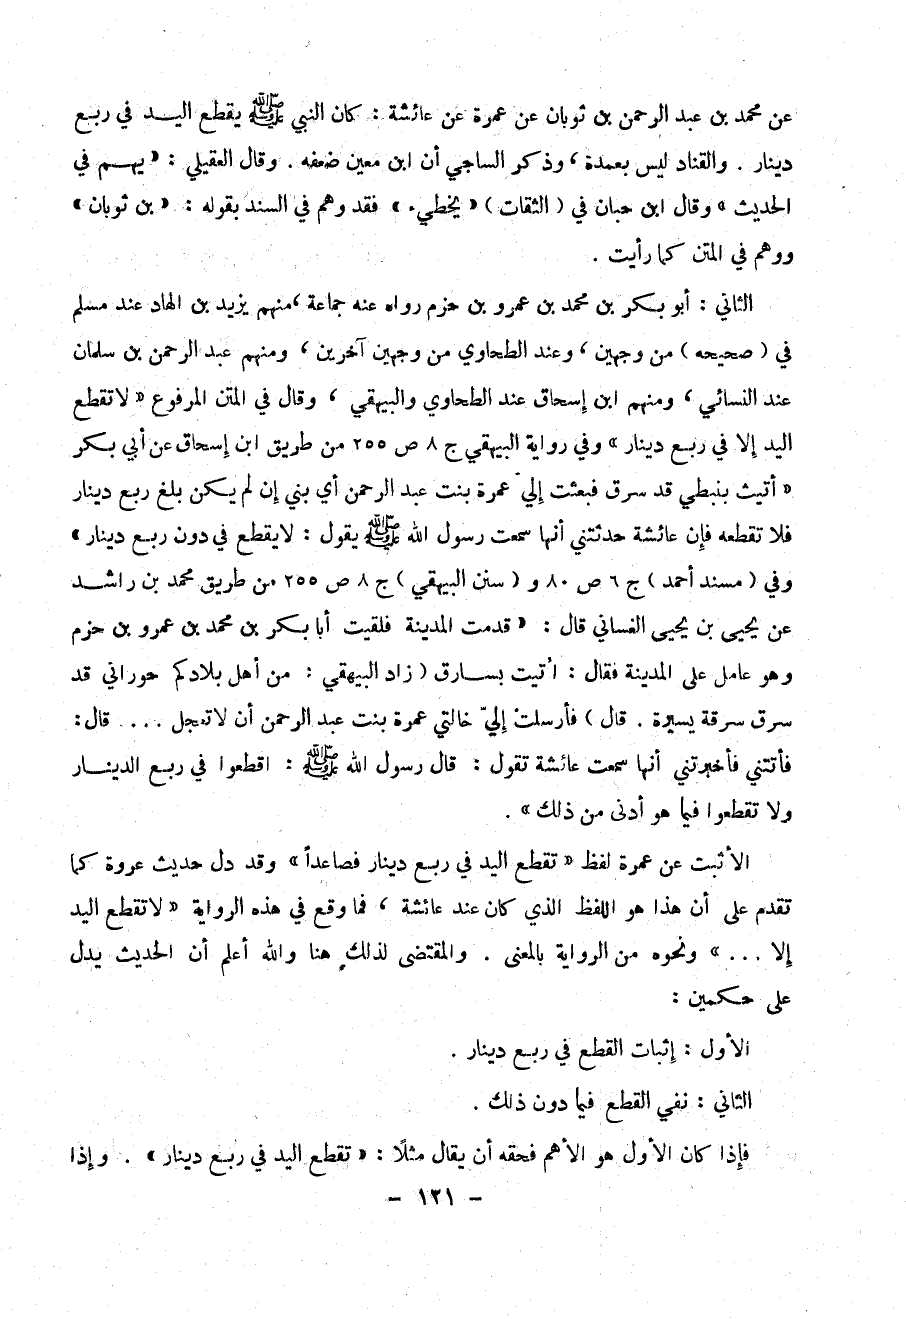 عن محمد بن عبد الرحمن بن ثوبان عن عمرة عن عائشة : كان النبي ﷺ يقطع اليـد في ربع
دينار . والقناد ليس بعمدة ، وذكر الساجي أن ابن معين ضعفه . وقال العقيلي : « يهـم في
الحديث » وقال ابن حبان في ( الثقات ) « يخطيء » فقد وهم في السند بقوله : « بن ثوبان »
ووهم في المتن كما رأيت .
الثاني : أبو بكر بن محمد بن عمرو بن حزم رواه عنه جماعة ، منهم يزيد بن الهاد عند مسلم
في ( صحيحه ) من وجهين ، وعند الطحاوي من وجهين آخرين ، ومنهم عبد الرحمن بن سلمان
عند النسائي ، ومنهم ابن إسحاق عند الطحاوي والبيهقي ، وقال في المتن المرفوع « لا تقطع
اليد إلا في ربع دينار » وفي رواية البيهقي ج ٨ ص ٢٥٥ من طريق ابن إسحاق عن أبي بكر
« أتيت بنبطي قد سرق فبعثت إليّ عمرة بنت عبد الرحمن أي بني إن لم يكن بلغ ربع دينار
فلا تقطعه فإن عائشة حدثتني أنها سمعت رسول الله ﷺ يقول : لا يقطع في دون ربع دينار »
وفي ( مسند أحمد ) ج ٦ ص ٨٠ و ( سنن البيهقي ) ج ٨ ص ٢٥٥ من طريق محمد بن راشـد
عن يحيى بن يحيى الغساني قال : « قدمت المدينة فلقيت أبا بكر بن محمد بن عمرو بن حزم
وهو عامل على المدينة فقال : أُتيت بسارق ( زاد البيهقي : من أهل بلادكم حوراني قد
سرق سرقة يسيرة . قال ) فأرسلتْ إليّ خالتي عمرة بنت عبد الرحمن أن لا تعجل .... قال :
فأتتني فأخبرتني أنها سمعت عائشة تقول : قال رسول الله ﷺ : اقطعوا في ربع الدينـار
ولا تقطعوا فيما هو أدنى من ذلك » .
الأثبت عن عمرة لفظ « تقطع اليد في ربع دينار فصاعداً » وقد دل حديث عروة كما
تقدم على أن هذا هو اللفظ الذي كان عند عائشة ، فما وقع في هذه الرواية « لا تقطع اليد
إلا ... » ونحوه من الرواية بالمعنى . والمقتضى لذلك هنا والله أعلم أن الحديث يدل
على حكمين :
الأول : إثبات القطع في ربع دينار .
الثاني : نفي القطع فيما دون ذلك .
فإذا كان الأول هو الأهم فحقه أن يقال مثلًا : « تقطع اليد في ربع دينار » . وإذا
– ١٢١ –